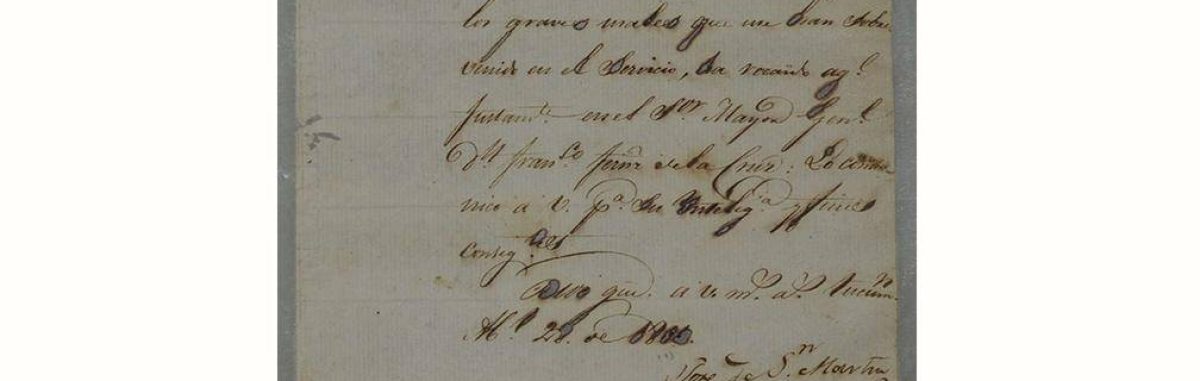 los graves males que me han sobre
venido en el Servicio, ha recaido aq.l
justam.te en el S.or Mayor Gen.l
D.n Fran.co Fern.z de la Cruz: Lo comu
nico a V. p.a su Intelig.a y fines
consig.tes
Dios gue. a V. m.s a.s Tucum.n
Ab.l 28. de
Jose de S.n Martin